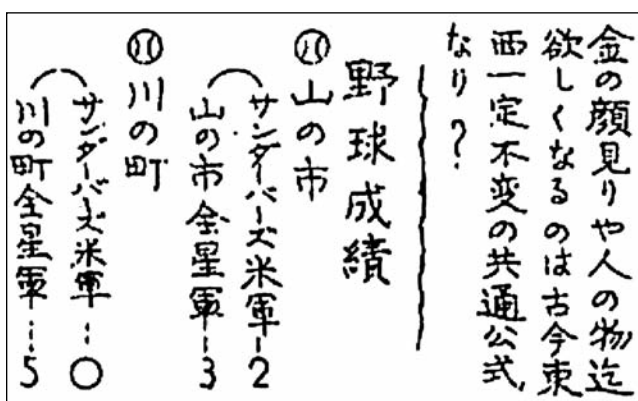 金の顔見りや人の物迄
欲しくなるのは古今東
西一定不変の共通公式
なり?
野球成績
山の市
サンダーバーズ米軍…2
山の市全星軍…3
川の町
サンダーバーズ米軍…○
川の町全星軍…5